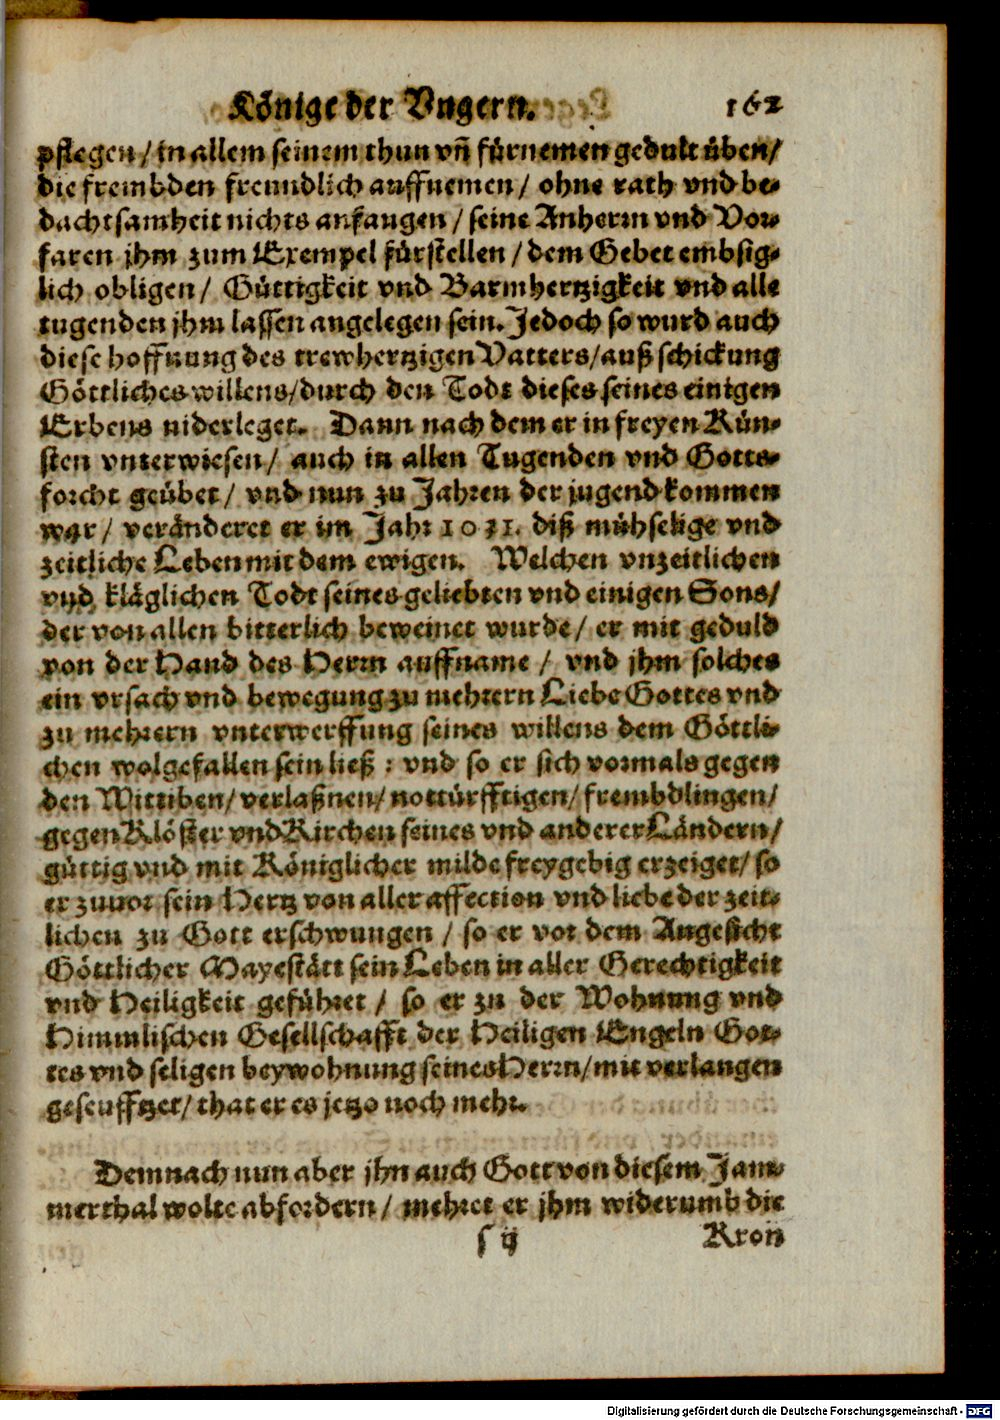 Könige der Vngern. 162
pflegen / in allem seinem thun vñ fürnemen gedult üben /
die frembden freundlich auffnemen / ohne rath vnd be-
dachtsamheit nichts anfangen / seine Anherrn vnd Vor-
faren jhm zum Exempel fürstellen / dem Gebet embsig-
lich obligen / Güttigkeit vnd Barmhertzigkeit vnd alle
tugenden jhm lassen angelegen sein. Jedoch so wurd auch
diese hoffnung des trewhertzigen Vatters / auß schickung
Göttliches willens / durch den Todt dieses seines einigen
Erbens niderleget. Dann nach dem er in freyen Kün-
sten vnterwiesen / auch in allen Tugenden vnd Gotts-
forcht geübet / vnd nun zu Jahren der jugend kommen
war / veränderet er im Jahr 1031. diß mühselige vnd
zeitliche Leben mit dem ewigen. Welchen vnzeitlichen
vnd kläglichen Todt seines geliebten vnd einigen Sons /
der von allen bitterlich beweinet wurde / er mit geduld
von der Hand des Herrn auffname / vnd jhm solches
ein vrsach vnd bewegung zu mehrern Liebe Gottes vnd
zu mehrern vnterwerffung seines willens dem Göttli-
chen wolgefallen sein ließ : vnd so er sich vormals gegen
den Wittiben / verlaßnen / nottürfftigen / frembdlingen /
gegen Klöster vnd Kirchen seines vnd anderer Ländern /
güttig vnd mit Königlicher milde freygebig erzeiget / so
er zuuor sein Hertz von aller affection vnd liebe der zeit-
lichen zu Gott erschwungen / so er vor dem Angesicht
Göttlicher Mayestätt sein Leben in aller Gerechtigkeit
vnd Heiligkeit geführet / so er zu der Wohnung vnd
Himmlischen Gesellschafft der Heiligen Engeln Got-
tes vnd seligen beywohnung seines Herrn / mit verlangen
geseufftzet / that er es jetzo noch mehr.
Demnach nun aber jhn auch Gott von diesem Jam-
merthal wolte abfordern / mehret er jhm widerumb die
s ij Kron
Digitalisierung gefördert durch die Deutsche Forschungsgemeinschaft - DFG